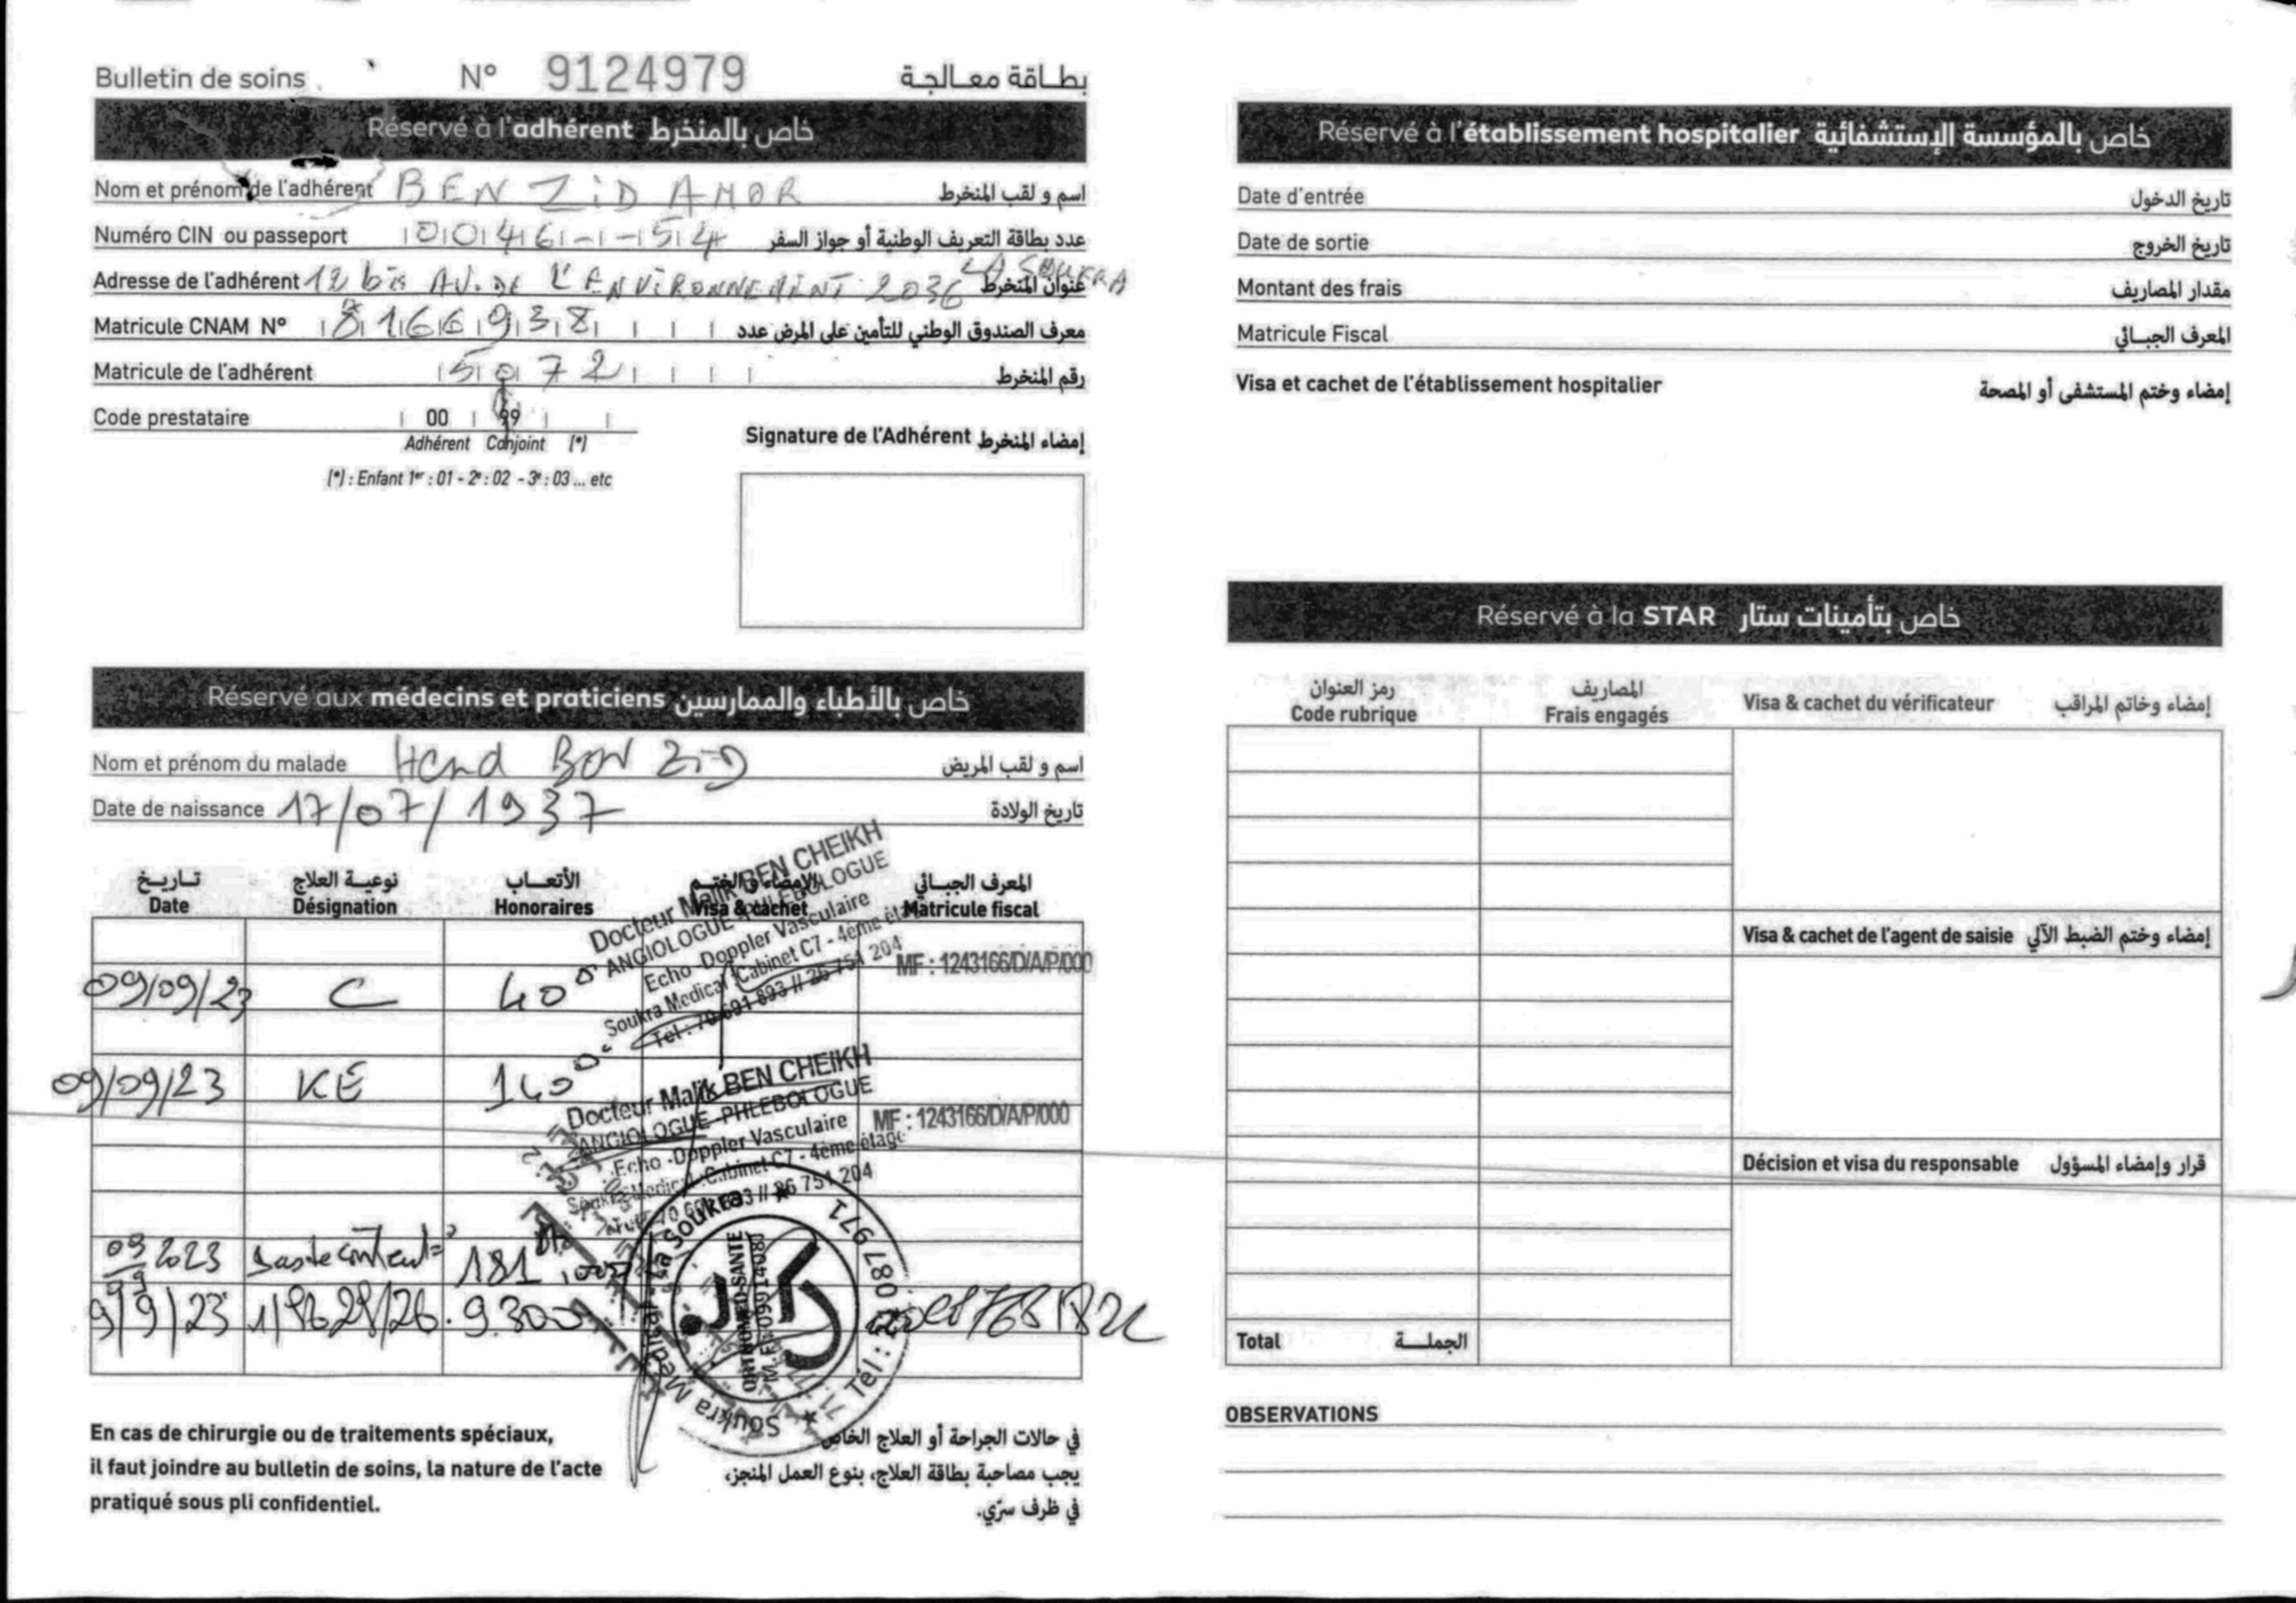 Bulletin de soins N° 9124979 بطاقة معالجة
Réservé à l'adhérent خاص بالمنخرط
Nom et prénom de l'adhérent BEN ZiD AMOR اسم و لقب المنخرط
Numéro CIN ou passeport عدد بطاقة التعريف الوطنية أو جواز السفر
Adresse de l'adhérent 12 bis AV. DE L'ENViRONNEMENT 2036 LA SOUKRA عنوان المنخرط
Matricule CNAM N° 8166938 معرف الصندوق الوطني للتأمين على المرض عدد
Matricule de l'adhérent 5072 رقم المنخرط
Code prestataire 00 99
Adhérent Conjoint (*)
(*) : Enfant 1er : 01 - 2e : 02 - 3e : 03 ... etc
Signature de l'Adhérent إمضاء المنخرط
Réservé aux médecins et praticiens خاص بالأطباء والممارسين
Nom et prénom du malade Hend BEN ZiD اسم و لقب المريض
Date de naissance 17/07/1937 تاريخ الولادة
تاريخ نوعية العلاج الأتعاب الإمضاء والختم المعرف الجبائي
Date Désignation Honoraires Visa & cachet Matricule fiscal
Docteur Malik BEN CHEIKH
ANGIOLOGUE PHLEBOLOGUE
Echo -Doppler Vasculaire
Soukra Medical Cabinet C7 - 4ème étage
Tel : 70 691 893 // 26 751 204
09/09/23 C 40 MF : 1243166/D/A/P/000
09/09/23 KE 140
Docteur Malik BEN CHEIKH
ANGIOLOGUE -PHLEBOLOGUE
Echo -Doppler Vasculaire MF : 1243166/D/A/P/000
Soukra Medical Cabinet C7 - 4ème étage
70 691 893 // 26 751 204
09 2023 181
9/9/23 9.300
Soukra Medical - La Soukra
ORTHOMED-SANTE
087 971
En cas de chirurgie ou de traitements spéciaux,
il faut joindre au bulletin de soins, la nature de l'acte
pratiqué sous pli confidentiel.
في حالات الجراحة أو العلاج الخاص
يجب مصاحبة بطاقة العلاج، بنوع العمل المنجز،
في ظرف سرّي.
Réservé à l'établissement hospitalier خاص بالمؤسسة الإستشفائية
Date d'entrée تاريخ الدخول
Date de sortie تاريخ الخروج
Montant des frais مقدار المصاريف
Matricule Fiscal المعرف الجبائي
Visa et cachet de l'établissement hospitalier إمضاء وختم المستشفى أو المصحة
Réservé à la STAR خاص بتأمينات ستار
رمز العنوان المصاريف
Code rubrique Frais engagés Visa & cachet du vérificateur إمضاء وخاتم المراقب
Visa & cachet de l'agent de saisie إمضاء وختم الضبط الآلي
Décision et visa du responsable قرار وإمضاء المسؤول
Total الجملة
OBSERVATIONS